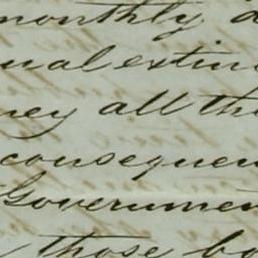 monthly a
ual extin
ney all the
consequen
Governmen
those bo